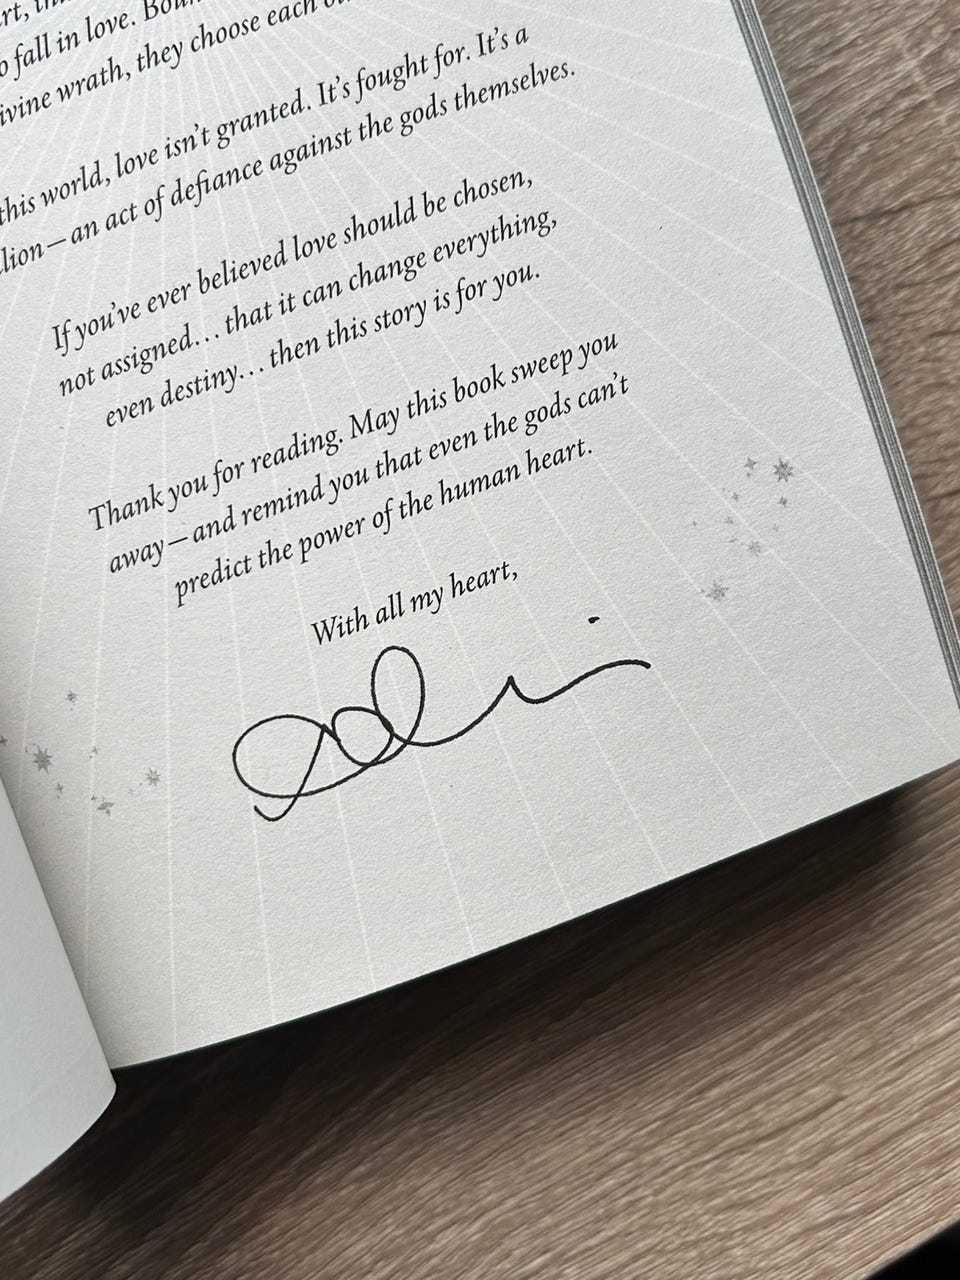 to fall in love.
divine wrath, they choose each
this world, love isn't granted. It's fought for. It's a
lion—an act of defiance against the gods themselves.
If you've ever believed love should be chosen,
not assigned… that it can change everything,
even destiny… then this story is for you.
Thank you for reading. May this book sweep you
away—and remind you that even the gods can't
predict the power of the human heart.
With all my heart,